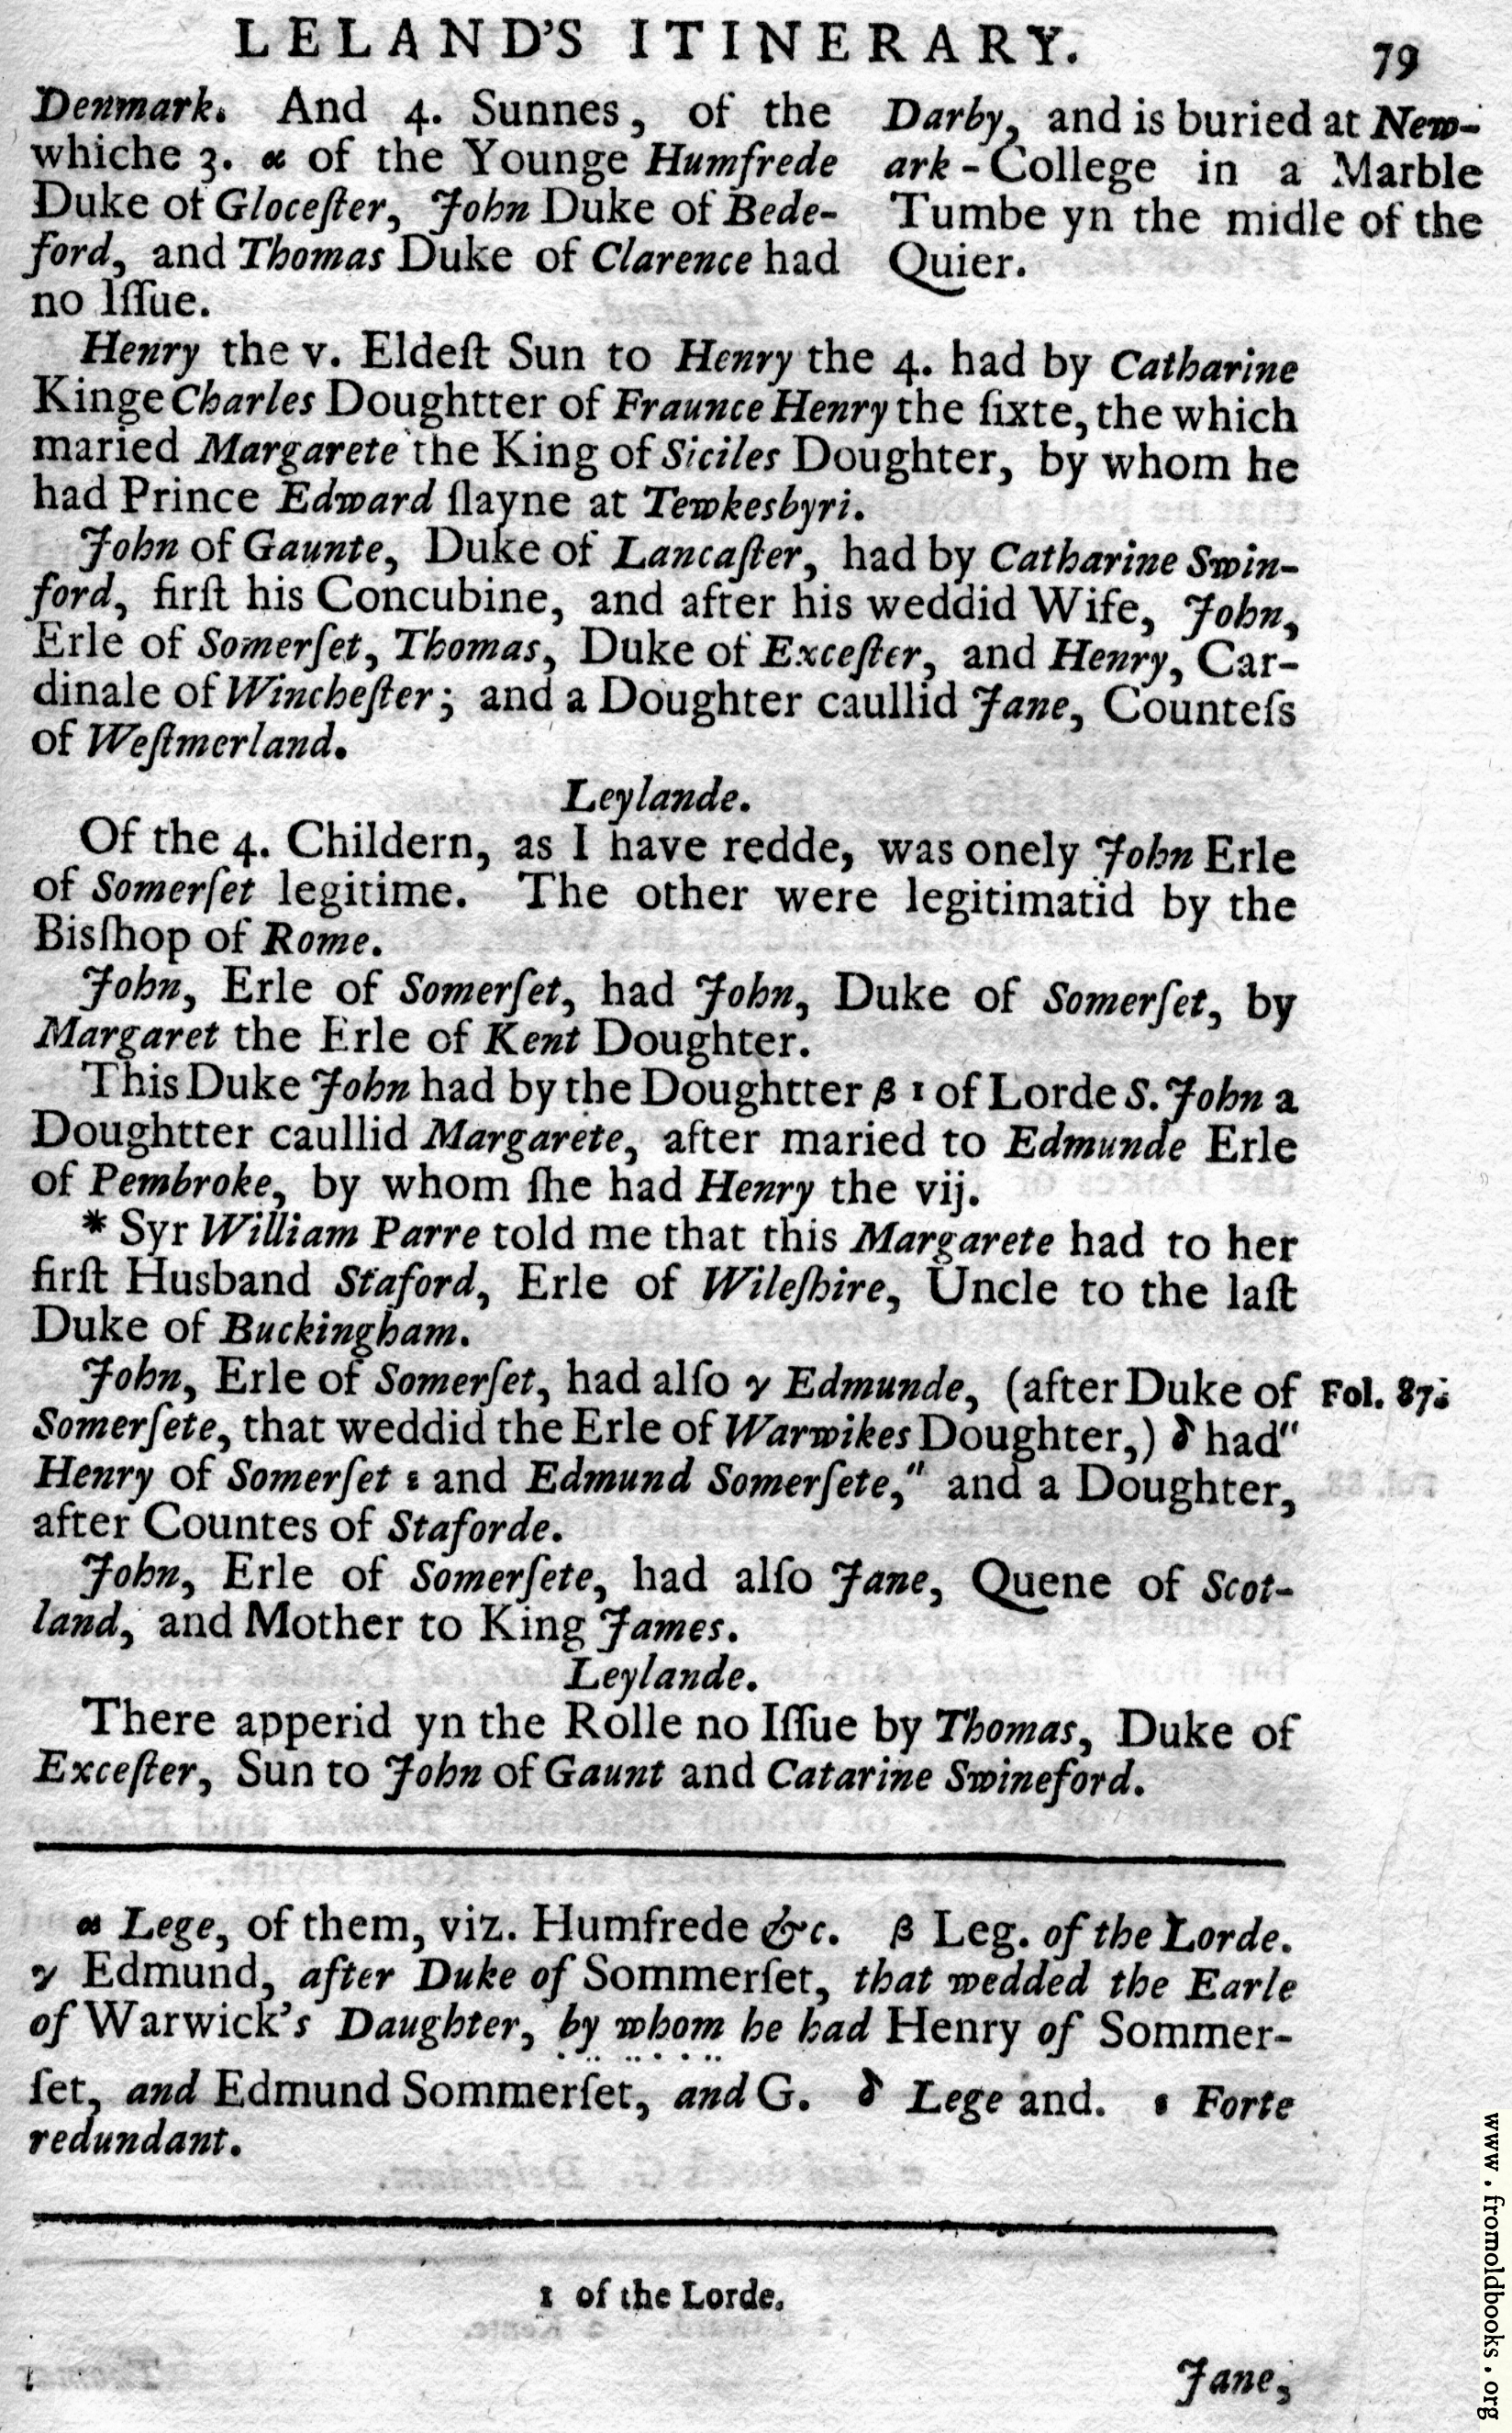 LELAND'S ITINERARY.
79
Denmark. And 4. Sunnes, of the
whiche 3. α of the Younge Humfrede
Duke of Gloceſter, John Duke of Bede-
ford, and Thomas Duke of Clarence had
no Iſſue.
Darby, and is buried at New-
ark-College in a Marble
Tumbe yn the midle of the
Quier.
Henry the v. Eldeſt Sun to Henry the 4. had by Catharine
Kinge Charles Doughtter of Fraunce Henry the ſixte, the which
maried Margarete the King of Siciles Doughter, by whom he
had Prince Edward ſlayne at Tewkesbyri.
John of Gaunte, Duke of Lancaſter, had by Catharine Swin-
ford, firſt his Concubine, and after his weddid Wife, John,
Erle of Somerſet, Thomas, Duke of Exceſter, and Henry, Car-
dinale of Wincheſter; and a Doughter caullid Jane, Counteſs
of Weſtmerland.
Leylande.
Of the 4. Childern, as I have redde, was onely John Erle
of Somerſet legitime. The other were legitimatid by the
Bisſhop of Rome.
John, Erle of Somerſet, had John, Duke of Somerſet, by
Margaret the Erle of Kent Doughter.
This Duke John had by the Doughtter β 1 of Lorde S. John a
Doughtter caullid Margarete, after maried to Edmunde Erle
of Pembroke, by whom ſhe had Henry the vij.
* Syr William Parre told me that this Margarete had to her
firſt Husband Staford, Erle of Wileſhire, Uncle to the laſt
Duke of Buckingham.
John, Erle of Somerſet, had alſo γ Edmunde, (after Duke of
Fol. 87.
Somerſete, that weddid the Erle of Warwikes Doughter,) δ had"
Henry of Somerſet ε and Edmund Somerſete," and a Doughter,
after Countes of Staforde.
John, Erle of Somerſete, had alſo Jane, Quene of Scot-
land, and Mother to King James.
Leylande.
There apperid yn the Rolle no Iſſue by Thomas, Duke of
Exceſter, Sun to John of Gaunt and Catarine Swineford.
α Lege, of them, viz. Humfrede &c. β Leg. of the Lorde.
γ Edmund, after Duke of Sommerſet, that wedded the Earle
of Warwick's Daughter, by whom he had Henry of Sommer-
ſet, and Edmund Sommerſet, and G. δ Lege and. ε Forte
redundant.
1 of the Lorde.
Jane,
www.fromoldbooks.org